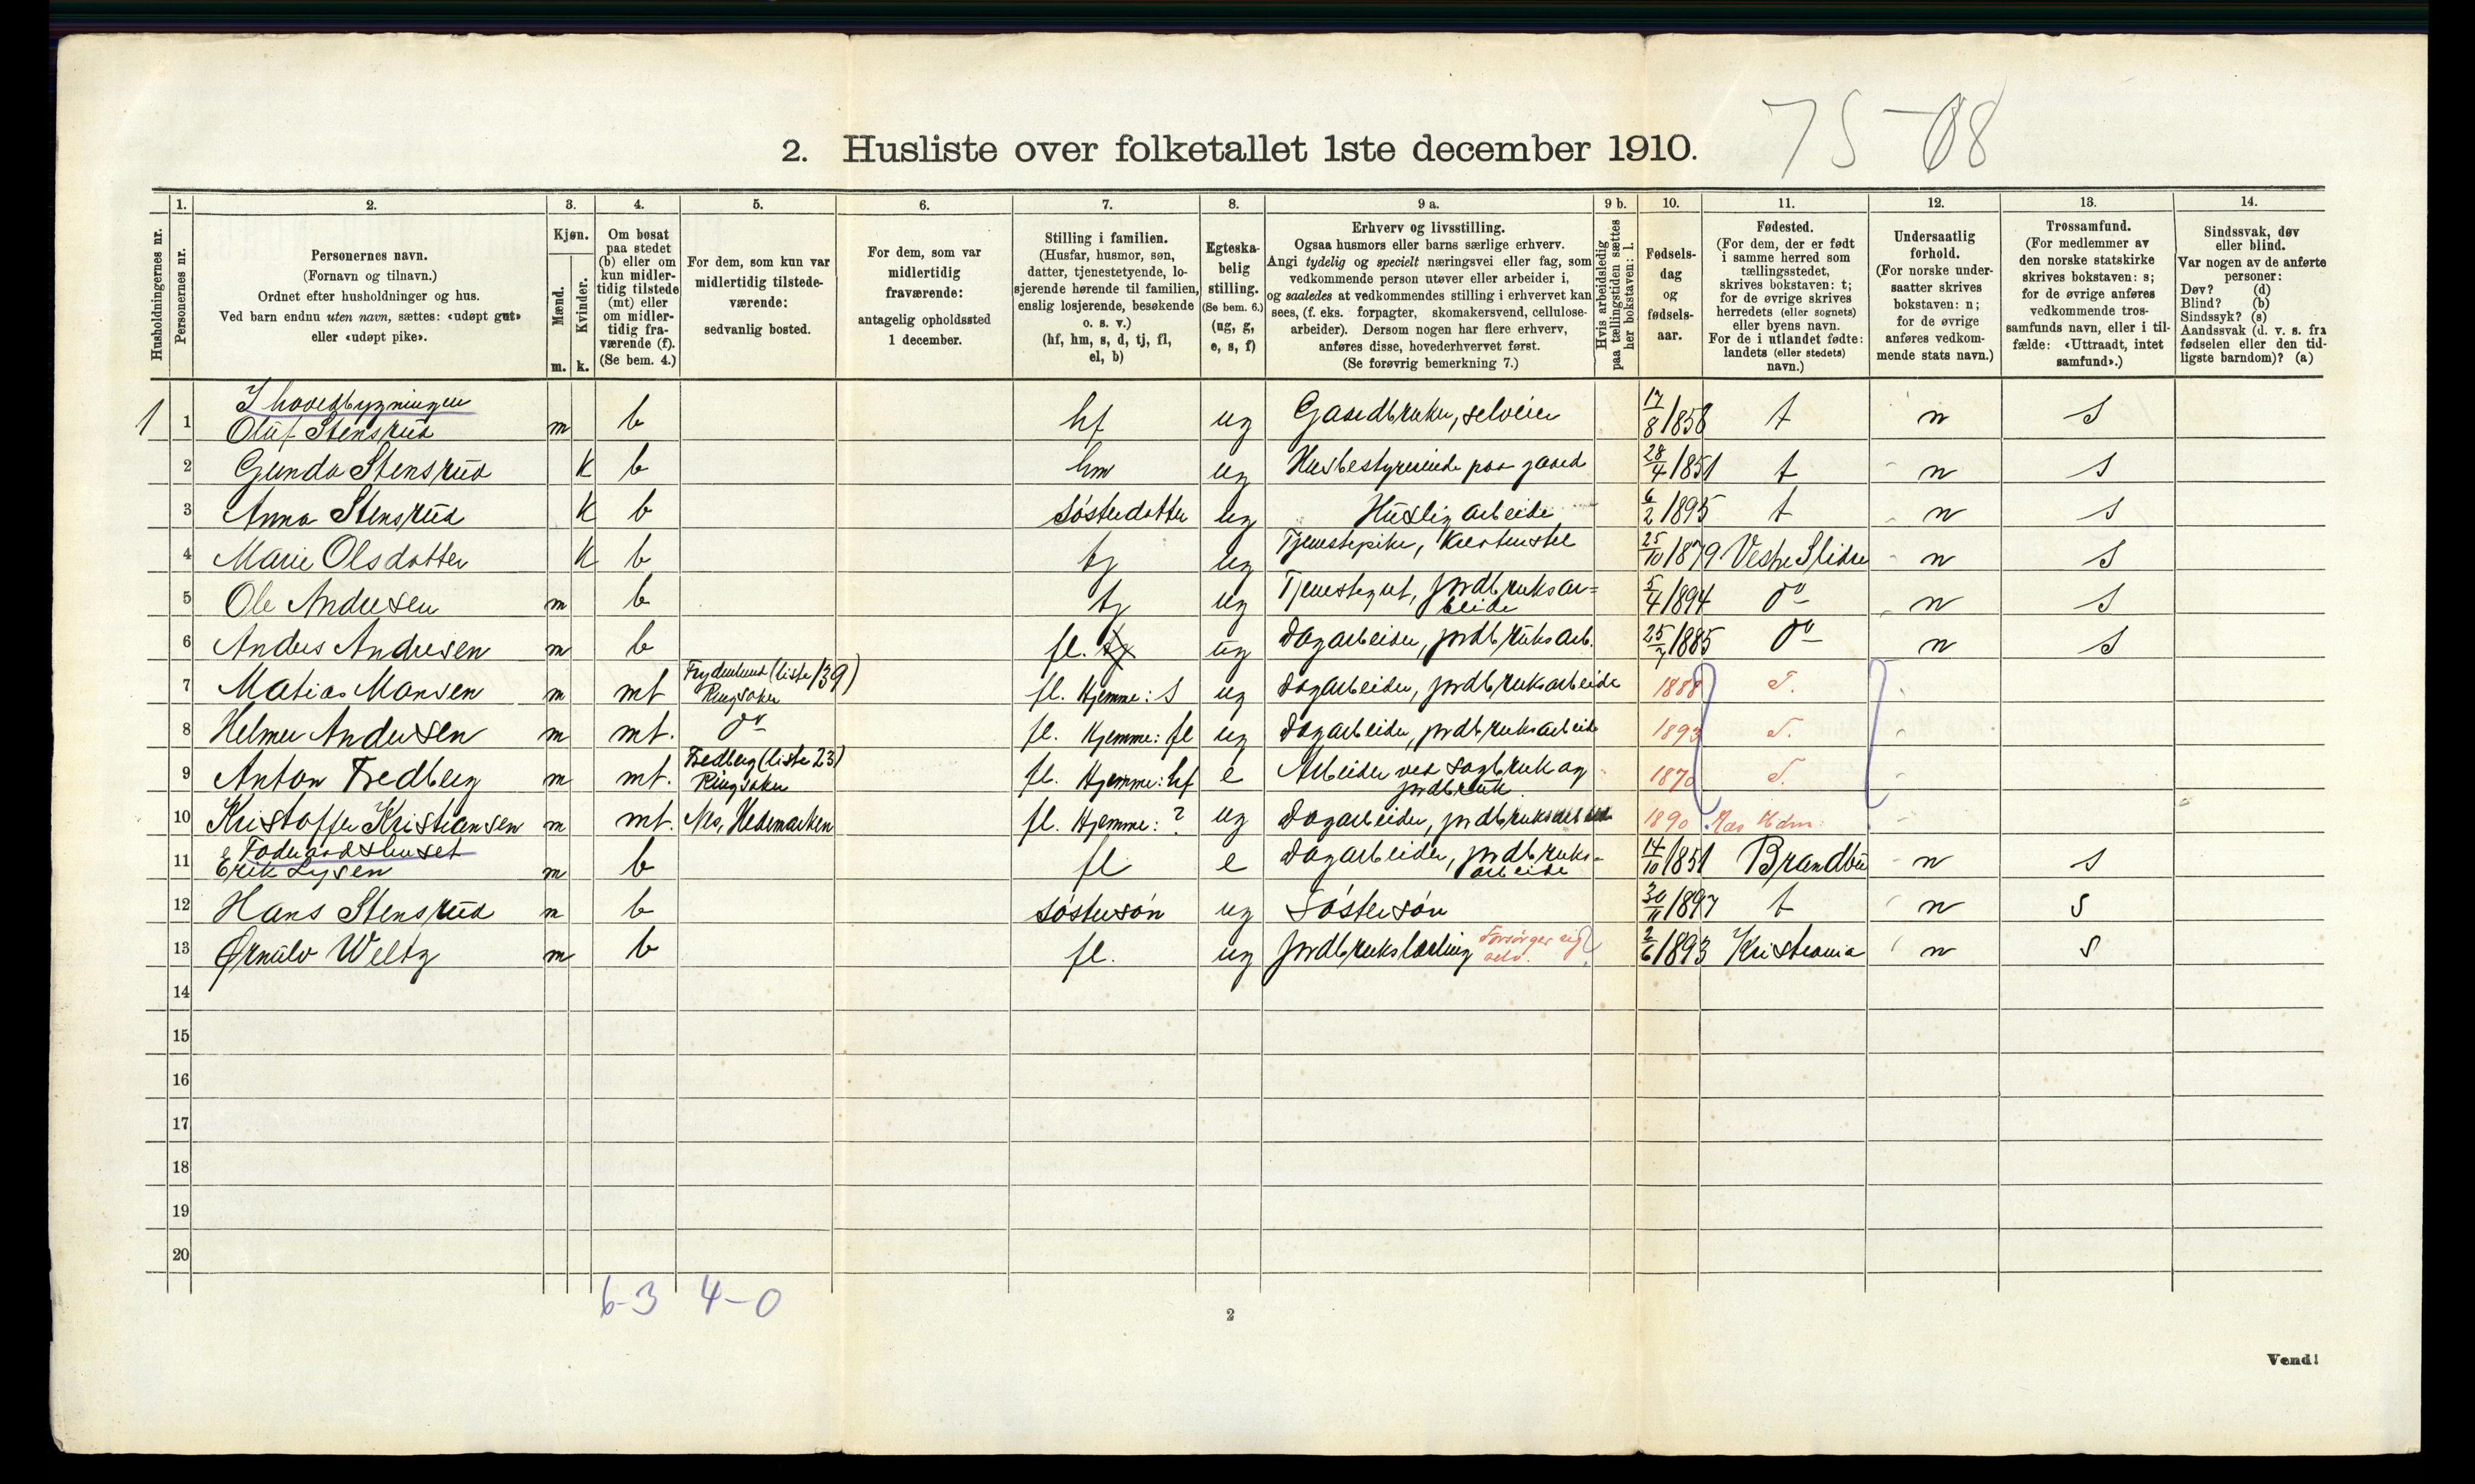 75-08
2. Husliste over folketallet 1ste december 1910.
Husholdningernes nr.
1.
Personernes nr.
2.
Personernes navn.
(Fornavn og tilnavn.)
Ordnet efter husholdninger og hus.
Ved barn endnu uten navn, sættes: «udøpt gut»
eller «udøpt pike».
3.
Kjøn.
Mænd.
Kvinder.
m. k.
4.
Om bosat
paa stedet
(b) eller om
kun midler-
tidig tilstede
(mt) eller
om midler-
tidig fra-
værende (f).
(Se bem. 4.)
5.
For dem, som kun var
midlertidig tilstede-
værende:
sedvanlig bosted.
6.
For dem, som var
midlertidig
fraværende:
antagelig opholdssted
1 december.
7.
Stilling i familien.
(Husfar, husmor, søn,
datter, tjenestetyende, lo-
sjerende hørende til familien,
enslig losjerende, besøkende
o. s. v.)
(hf, hm, s, d, tj, fl,
el, b)
8.
Egteska-
belig
stilling.
(Se bem. 6.)
(ug, g,
e, s, f)
9 a.
Erhverv og livsstilling.
Ogsaa husmors eller barns særlige erhverv.
Angi tydelig og specielt næringsvei eller fag, som
vedkommende person utøver eller arbeider i,
og saaledes at vedkommendes stilling i erhvervet kan
sees, (f. eks. forpagter, skomakersvend, cellulose-
arbeider). Dersom nogen har flere erhverv,
anføres disse, hovederhvervet først.
(Se forøvrig bemerkning 7.)
9 b.
Hvis arbeidsledig
paa tællingstiden sættes
her bokstaven: l.
10.
Fødsels-
dag
og
fødsels-
aar.
11.
Fødested.
(For dem, der er født
i samme herred som
tællingsstedet,
skrives bokstaven: t;
for de øvrige skrives
herredets (eller sognets)
eller byens navn.
For de i utlandet fødte:
landets (eller stedets)
navn.)
12.
Undersaatlig
forhold.
(For norske under-
saatter skrives
bokstaven: n;
for de øvrige
anføres vedkom-
mende stats navn.)
13.
Trossamfund.
(For medlemmer av
den norske statskirke
skrives bokstaven: s;
for de øvrige anføres
vedkommende tros-
samfunds navn, eller i til-
fælde: «Uttraadt, intet
samfund».)
14.
Sindssvak, døv
eller blind.
Var nogen av de anførte
personer:
Døv? (d)
Blind? (b)
Sindssyk? (s)
Aandssvak (d. v. s. fra
fødselen eller den tid-
ligste barndom)? (a)
I hovedbygningen
1 1 Oluf Stensrud m b hf ug Gaardbruker, selveier 17/8 1858 t n S
2 Gunda Stensrud k b hm ug Husbestyrerinde paa gaard 28/4 1851 t n S
3 Anna Stensrud k b Søsterdatter ug Huslig arbeide 6/2 1895 t n S
4 Marie Olsdatter k b tj ug Tjenestepike, Kreaturstel 25/10 1879 Vestre Slidre n S
5 Ole Andresen m b tj ug Tjenestegut, jordbruksar=
beide 5/4 1894 do n S
6 Anders Andresen m b fl. tj ug Dagarbeider, jordbruksarb. 25/7 1885 do n S
7 Matias Monsen m mt Frydenlund (liste 139)
Ringsaker fl. Hjemme: s ug Dagarbeider, jordbruksarbeide 1888 T.
8 Helmer Andersen m mt. do fl. Hjemme: fl ug Dagarbeider, jordbruksarbeide 1893 T.
9 Anton Fredberg m mt. Fredberg (liste 23)
Ringsaker fl. Hjemme: hf e Arbeider ved sagbruk og
jordbruk. 1870 T.
10 Kristoffer Kristiansen m mt. Nes, Hedemarken fl. Hjemme: ? ug Dagarbeider, jordbruksarbeide 1890 Næs Hdm.
Føderaadshuset
11 Erik Lysen m b fl e Dagarbeider, jordbruks-
arbeide 14/10 1851 Brandbu n S
12 Hans Stensrud m b Søstersøn ug Søstersøn 30/11 1897 t n S
13 Ørnulv Weltz m b fl. ug Jordbrukslærling Forsørger sig
selv. 2/6 1893 Kristiania n S
14
15
16
17
18
19
20
6-3 4-0
2
Vend!